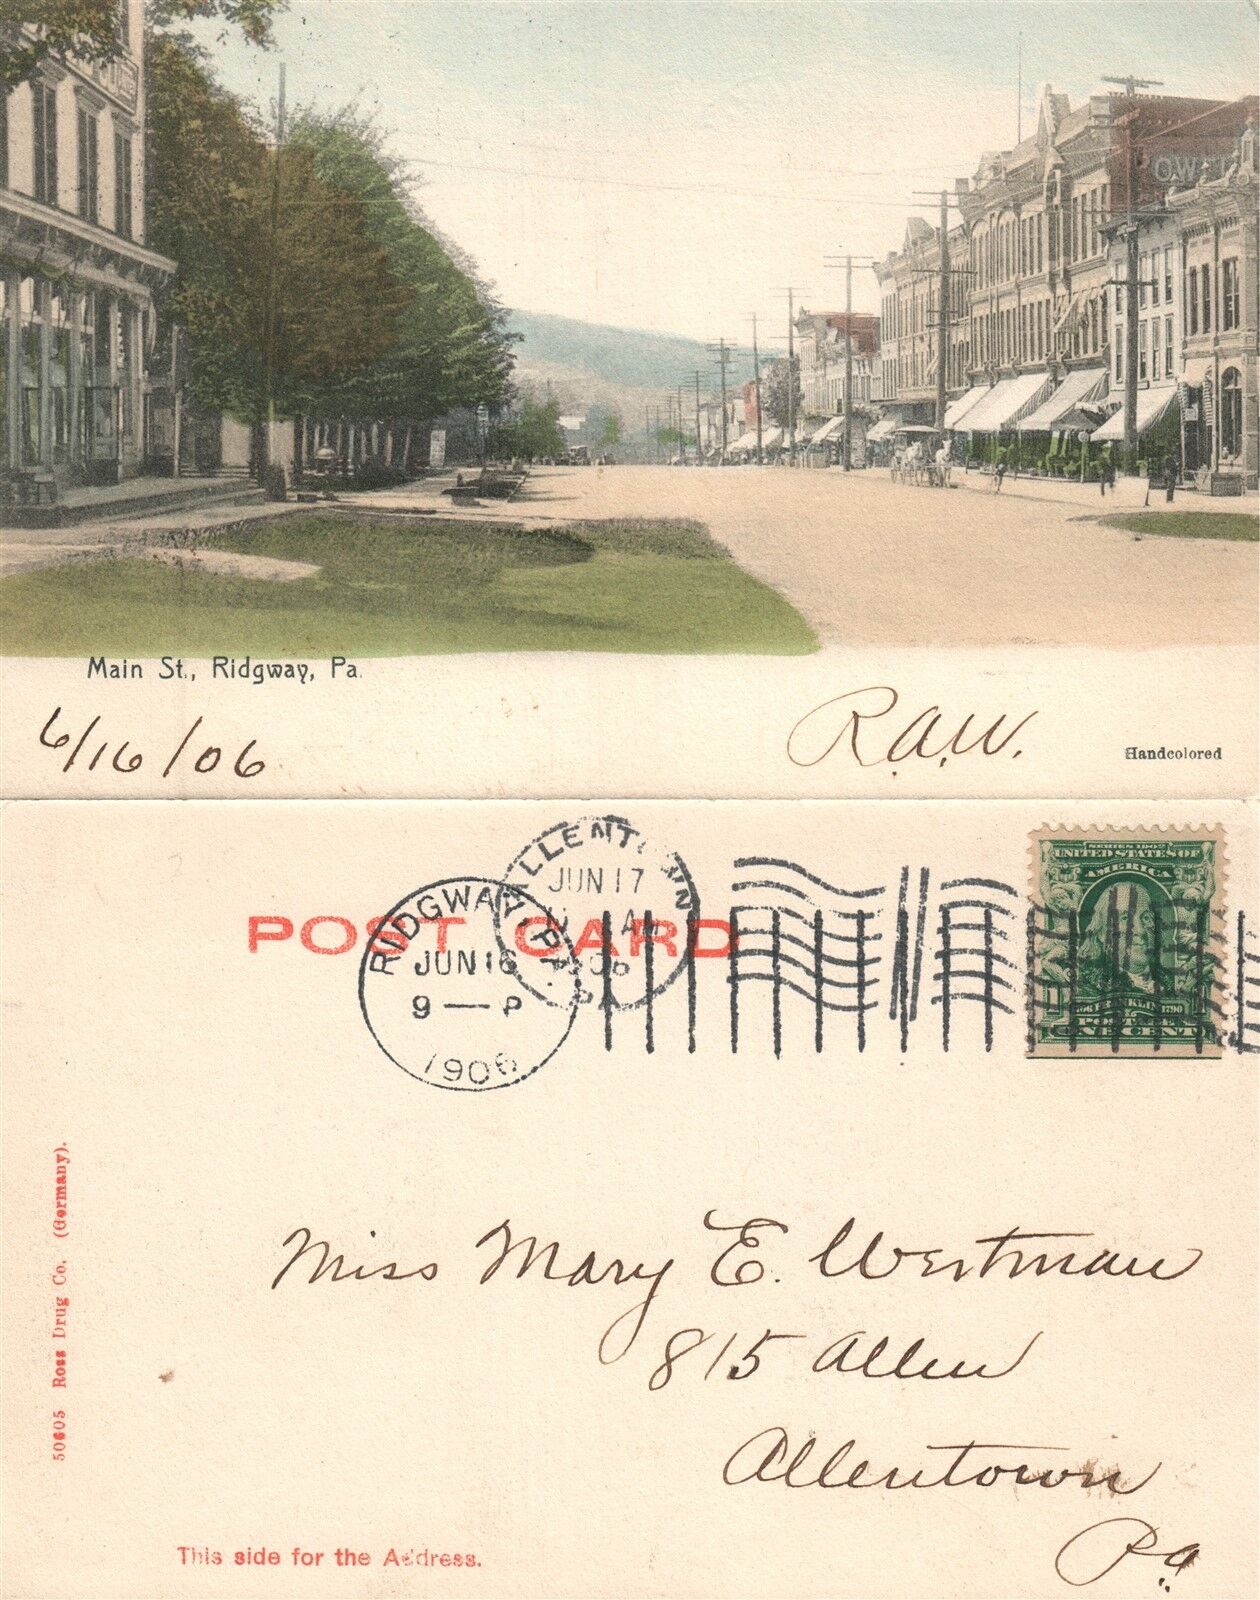 Main St., Ridgway, Pa.
6/16/06
R.A.W.
Handcolored
POST CARD
ALLENTOWN
JUN 17
1906
PA.
RIDGWAY, PA.
JUN 16
9 — P
1906
SERIES 1902
UNITED STATES OF
AMERICA
FRANKLIN
1790
POSTAGE
ONE CENT
Miss Mary E. Westman
815 Allen
Allentown
Pa
50605 Ross Drug Co. (Germany).
This side for the Address.